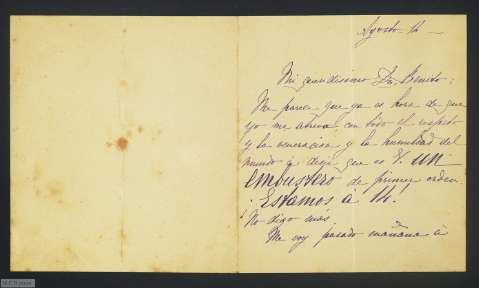 Agosto 14 –
Mi queridisimo Dn. Benito:
Me parece que ya es hora de que
yo me atreva, con todo el respeto
y la veneración y la humildad del
mundo á decir que es V. un
embustero de primer orden.
¡Estamos á 14!
No digo más.
Me voy pasado mañana á